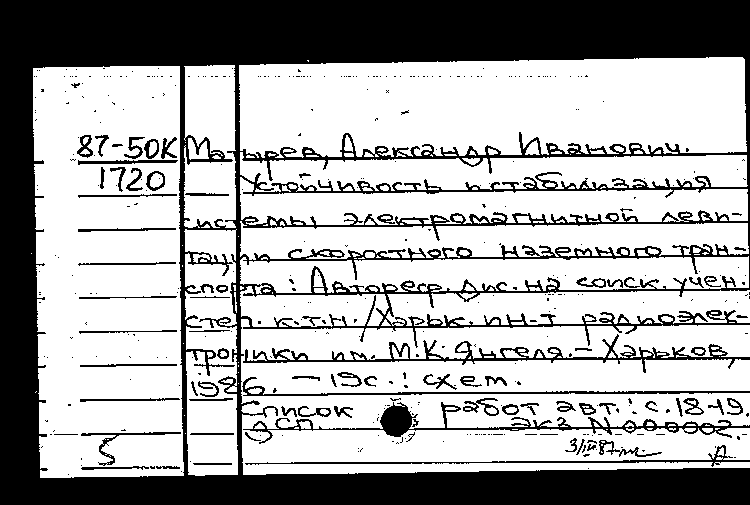 87-50К Матырев, Александр Иванович.
1720 Устойчивость и стабилизация
системы электромагнитной леви-
тации скоростного наземного тран-
спорта : Автореф. дис. на соиск. учен.
степ. к.т.н. / Харьк. ин-т радиоэлек-
троники им. М.К. Янгеля. – Харьков,
1986. – 19с. : схем.
Список работ авт.: с. 18-19.
ДСП. Экз. N 000002.
5